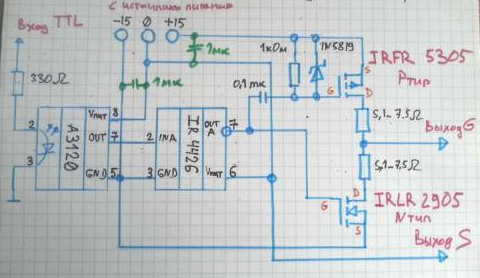 с источника питания
Вход TTL
-15 0 +15
1мк
1кОм
1N5819
IRFR 5305
P тип
S
G
D
330Ω
1мк
0,1мк
5,1-7.5Ω
Выход G
A3120
Vпит 8
OUT 7
GND 5
2
3
IR 4426
2 INA
3 GND
OUT A 7
Vпит 6
5,1-7.5Ω
D
G
S
IRLR 2905
N тип
Выход S